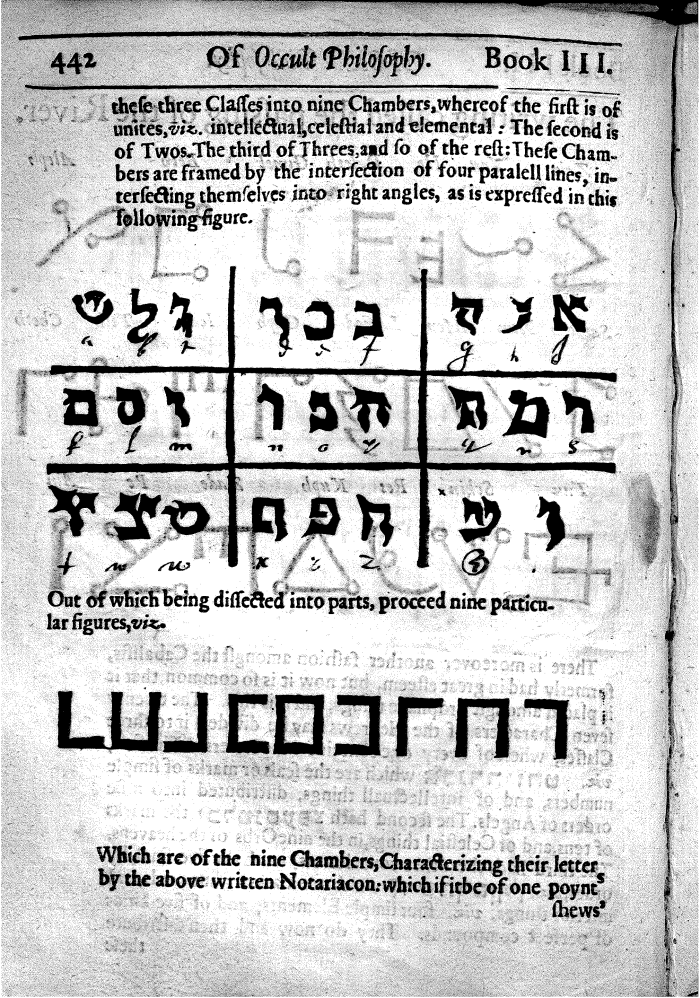 442 Of Occult Philoſophy. Book III.
theſe three Claſſes into nine Chambers, whereof the firſt is of
unites, viz. intellectual, celeſtial and elemental : The ſecond is
of Twos. The third of Threes, and ſo of the reſt: Theſe Cham-
bers are framed by the interſection of four paralell lines, in-
terſecting themſelves into right angles, as is expreſſed in this
following figure.
א י ק ב כ ר ג ל ש
a b c d e f g h
ד מ ת ה נ ך ו ס ם
l m n o p q r s
ע ח פ ף ט צ ץ
t u w x z
Out of which being diſſected into parts, proceed nine particu-
lar figures, viz.
Which are of the nine Chambers, Characterizing their letters
by the above written Notariacon: which if it be of one poynt
ſhews